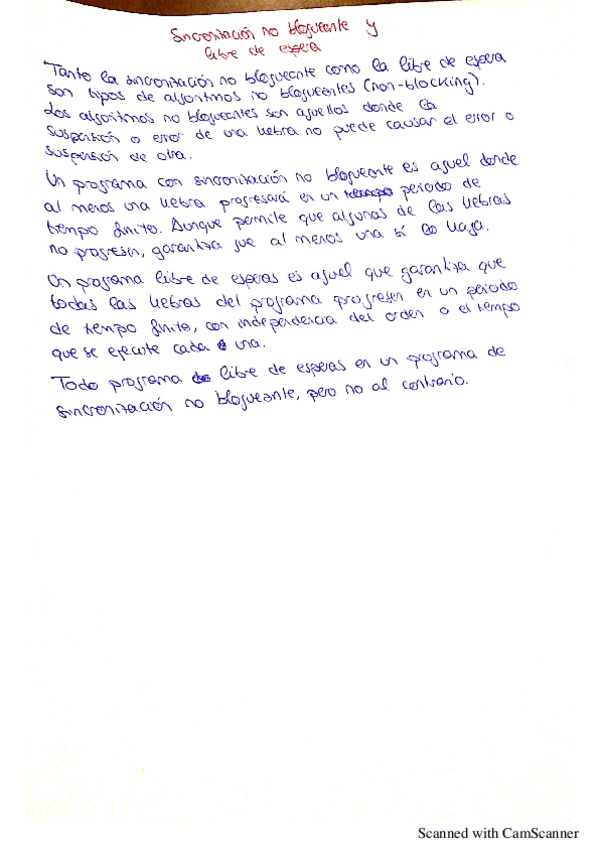 Sincronización no bloqueante y
libre de espera
Tanto la sincronización no bloqueante como la libre de espera
son tipos de algoritmos no bloqueantes (non-blocking).
Los algoritmos no bloqueantes son aquellos donde la
suspensión o error de una hebra no puede causar el error o
suspensión de otra.
Un programa con sincronización no bloqueante es aquel donde
al menos una hebra progresará en un periodo de
tiempo finito. Aunque permite que algunas de las hebras
no progresen, garantiza que al menos una sí lo haga.
Un programa libre de esperas es aquel que garantiza que
todas las hebras del programa progresen en un periodo
de tiempo finito, con independencia del orden o el tiempo
que se ejecute cada una.
Todo programa libre de esperas en un programa de
sincronización no bloqueante, pero no al contrario.
Scanned with CamScanner